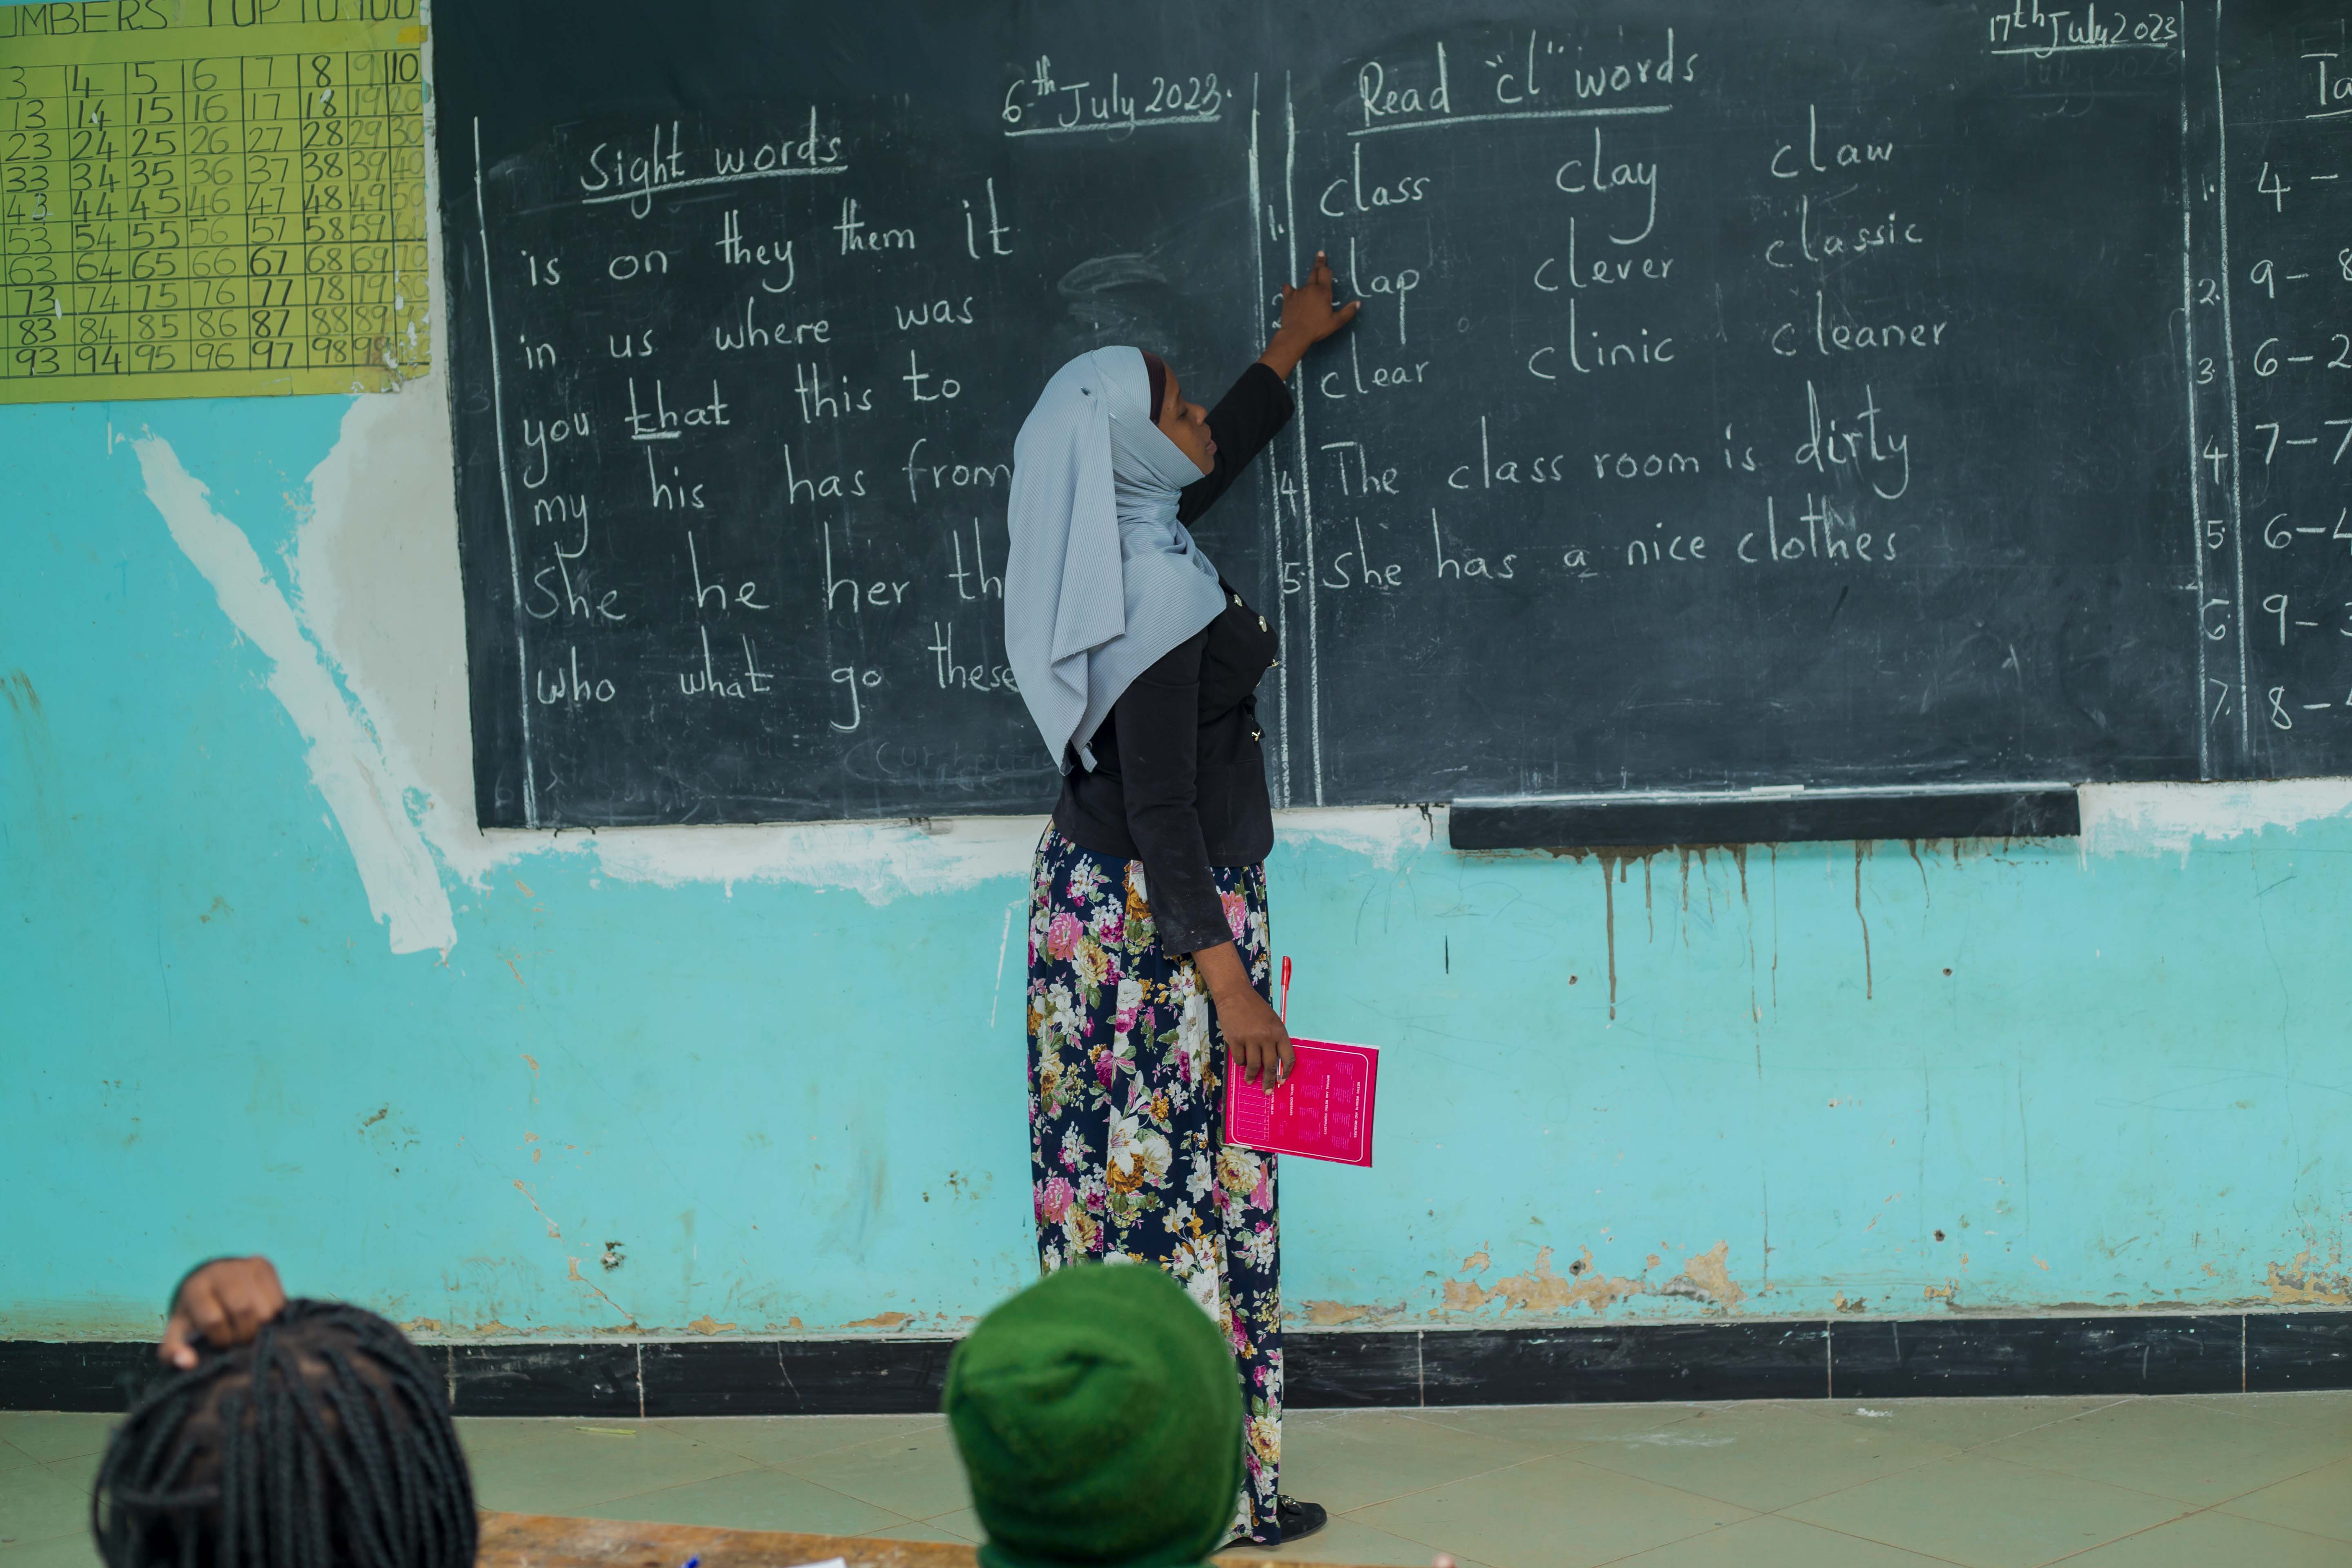 TO 100
3 4 5 6 7 8 9 10
13 14 15 16 17 18 19 20
23 24 25 26 27 28 29 30
33 34 35 36 37 38 39 40
43 44 45 46 47 48 49 50
53 54 55 56 57 58 59 60
63 64 65 66 67 68 69 70
73 74 75 76 77 78 79 80
83 84 85 86 87 88 89
93 94 95 96 97 98 99
6th July 2023.
Sight words
is on they them it
in us where was
you that this to
my his has from
She he her
who what go these
17th July 2023
Read "cl" words
1. class clay claw
lap clever classic
clear clinic cleaner
4 The class room is dirty
5. She has a nice clothes
1. 4 -
2. 9 -
3. 6 - 2
4 7 - 7
5 6 - 4
6. 9 -
7. 8 -